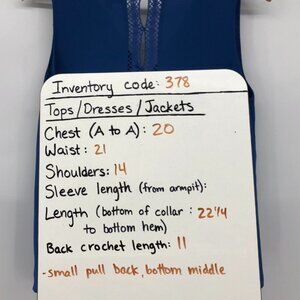 Inventory code: 378
Tops/Dresses/Jackets
Chest (A to A): 20
Waist: 21
Shoulders: 14
Sleeve length (from armpit):
Length (bottom of collar : 22 1/4
to bottom hem)
Back crochet length: 11
-small pull back, bottom middle